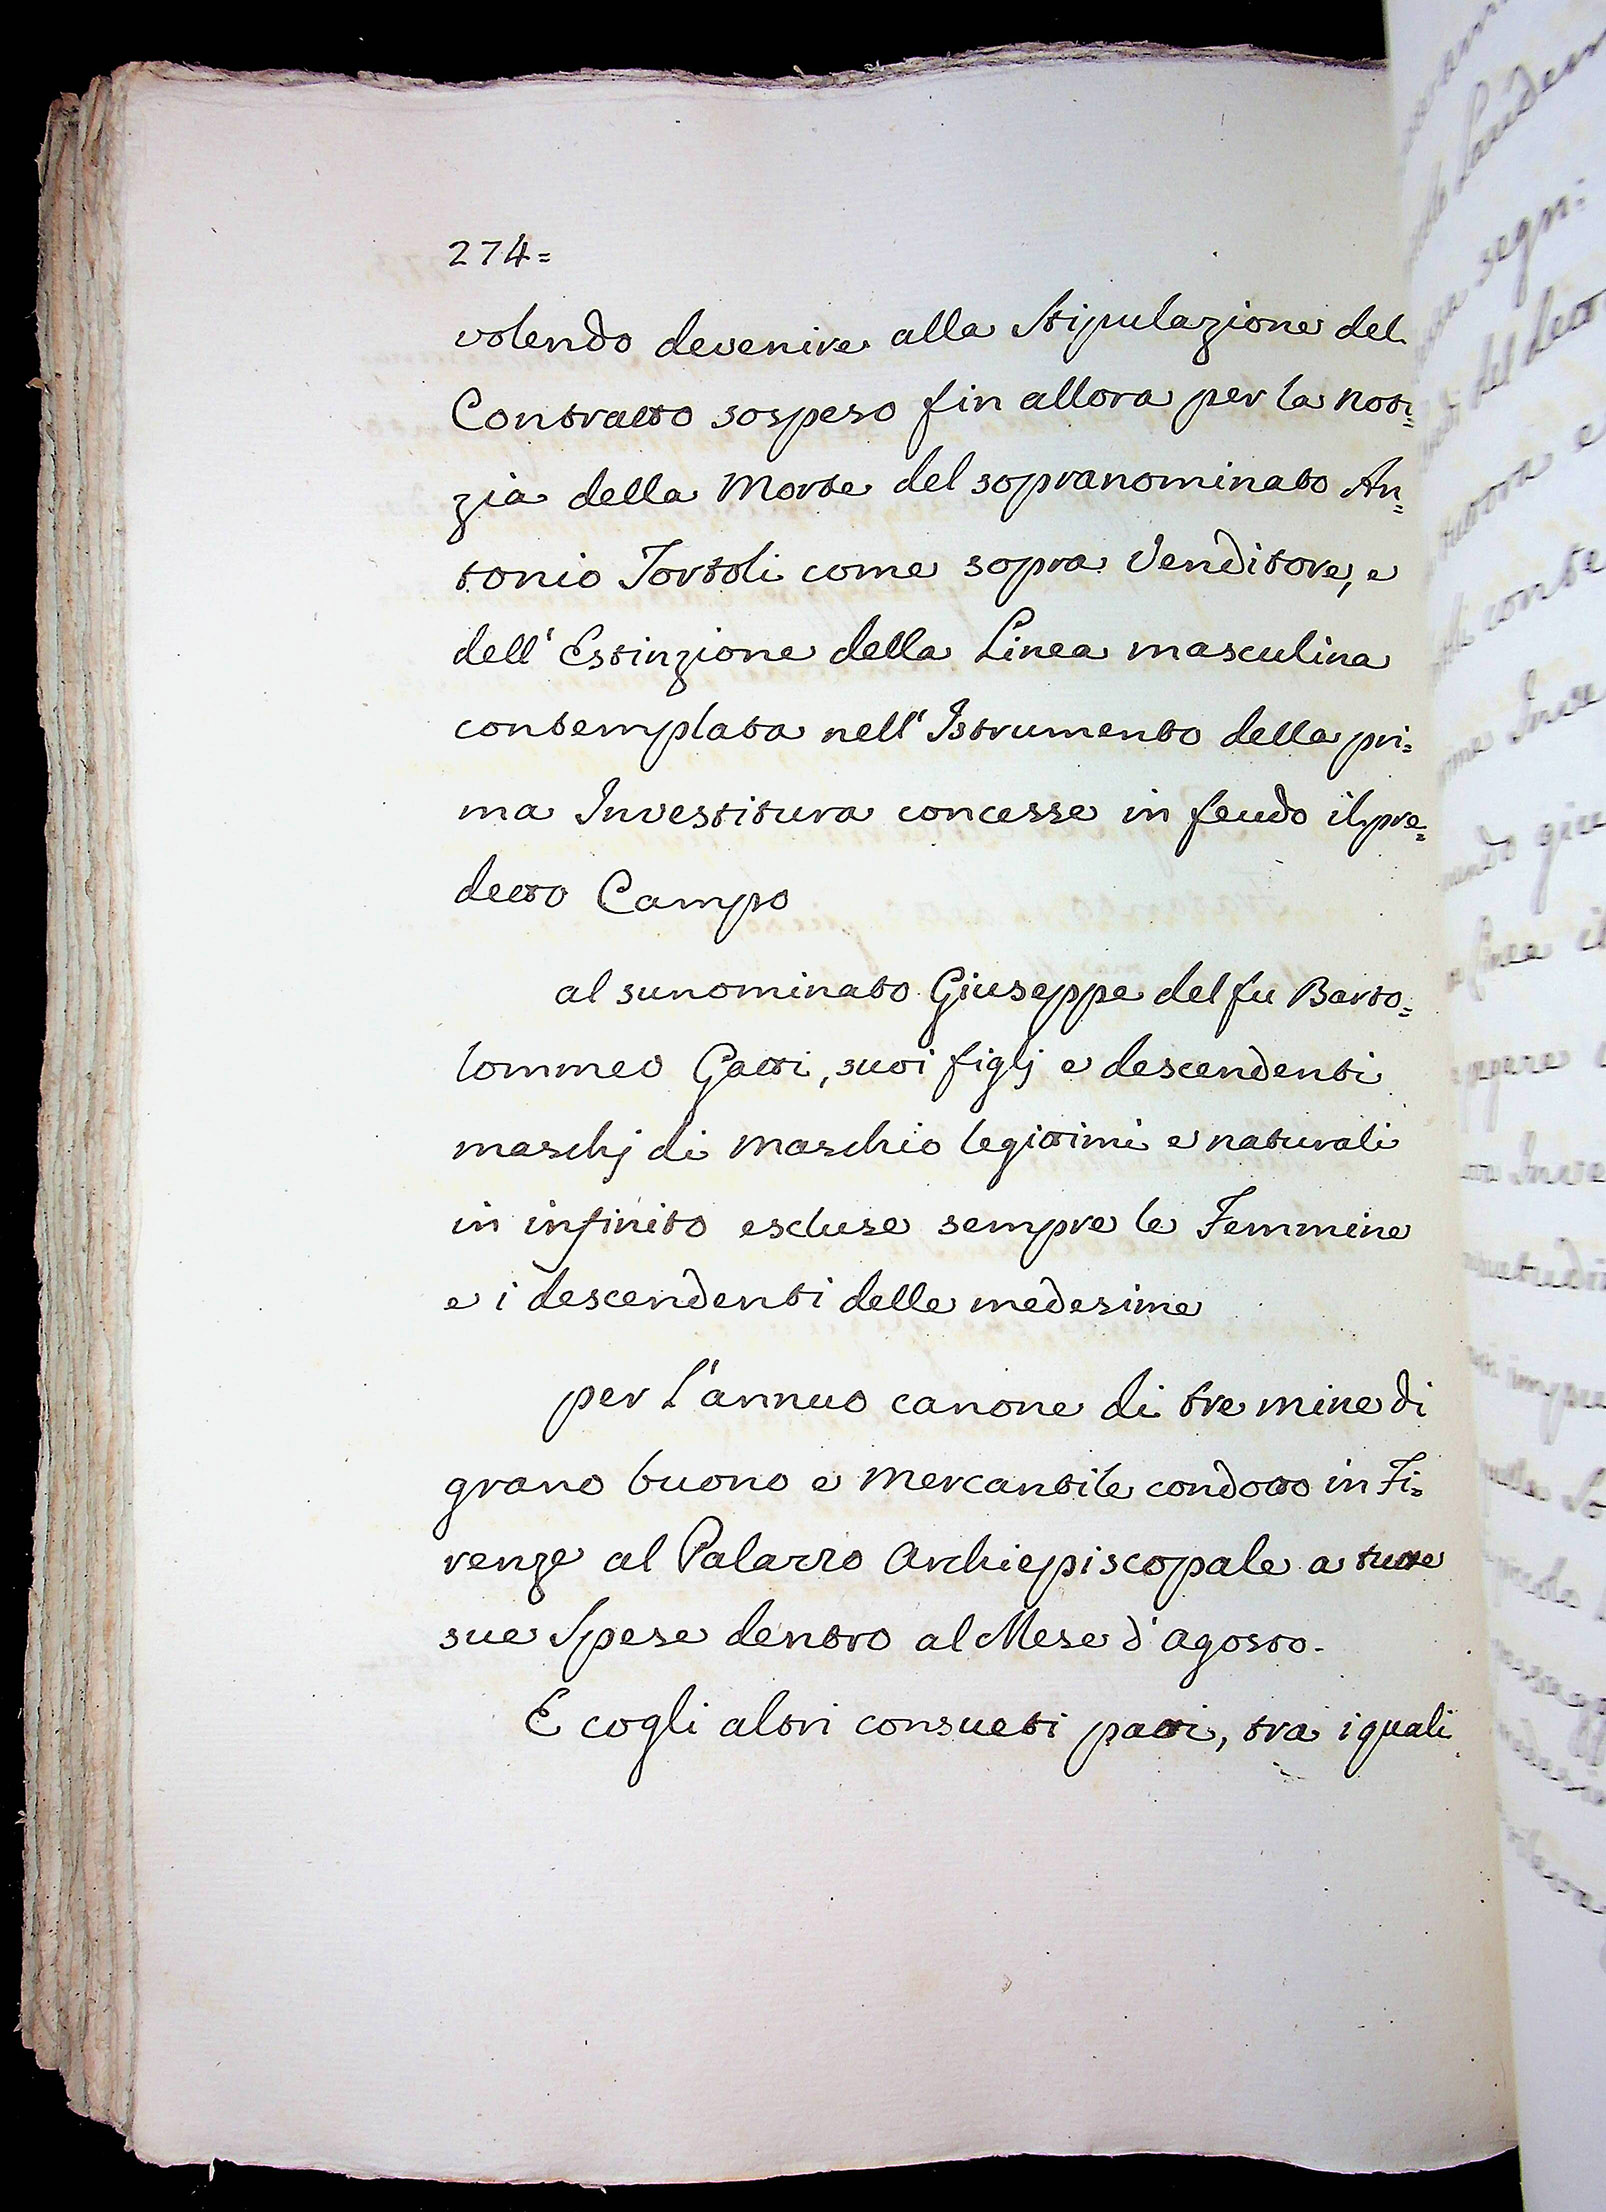 274=
volendo devenire alla Stipulazione del
Contratto sospeso fin allora per la noti=
zia della Morte del sopranominato An=
tonio Tortoli come sopra Venditore, e
dell' Estinzione della Linea masculina
contemplata nell' Istrumento della pri=
ma Investitura concesse in feudo il pre=
detto Campo
al sunominato Giuseppe del fu Barto=
lommeo Gatti, suoi figlj e descendenti
maschj di maschio legittimi e naturali
in infinito escluse sempre le Femmine
e i descendenti delle medesime
per l'annuo canone di tre mine di
grano buono e mercantile condotto in Fi=
renze al Palazzo Archiepiscopale a tutte
sue Spese dentro al Mese d'agosto.
E cogli altri consueti patti, tra i quali
segni:
conte